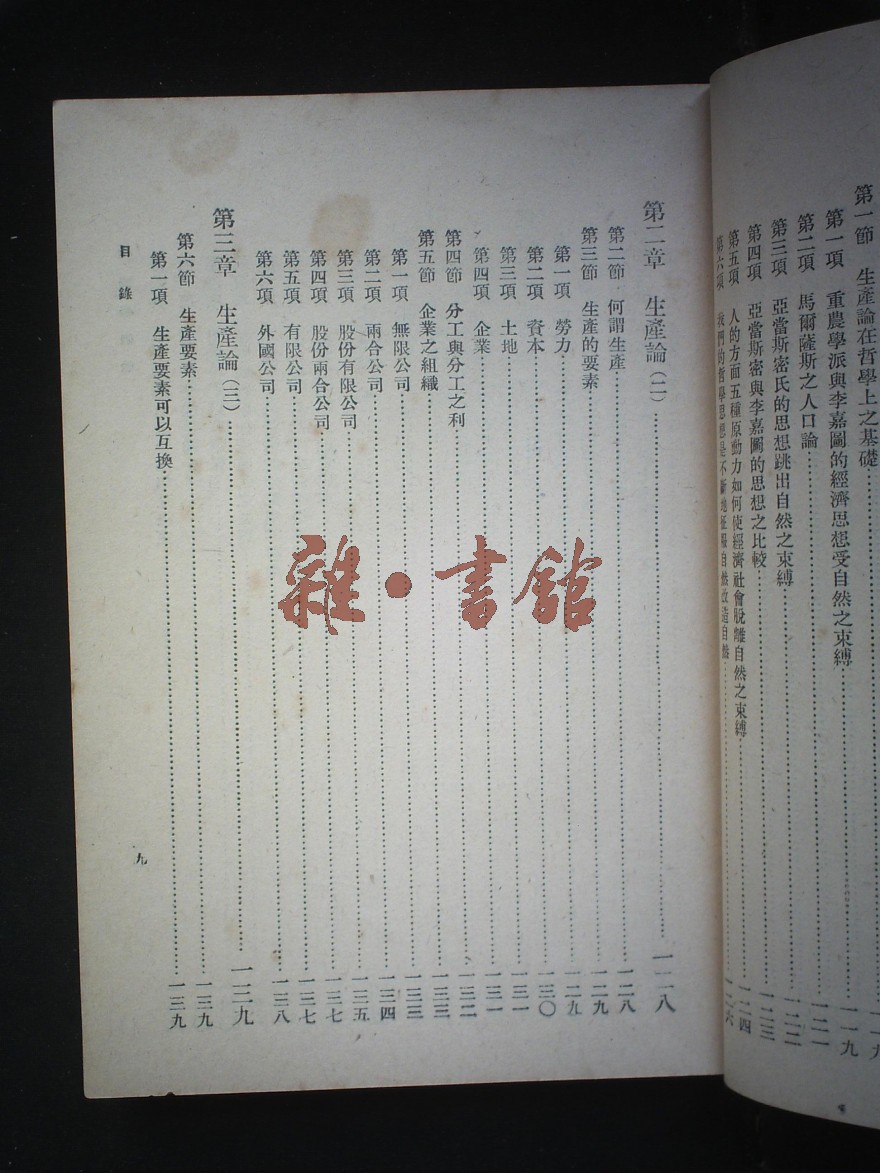 第一節 生產論在哲學上之基礎
第一項 重農學派與李嘉圖的經濟思想受自然之束縛……一一九
第二項 馬爾薩斯之人口論……一二一
第三項 亞當斯密氏的思想跳出自然之束縛……一二二
第四項 亞當斯密與李嘉圖的思想之比較……一二三
第五項 人的方面五種原動力如何使經濟社會脫離自然之束縛……一二四
第六項 我們的哲學思想是不斷地征服自然改造自然……一二六
第二章 生產論(二)……一二八
第二節 何謂生產……一二八
第三節 生產的要素……一二九
第一項 勞力……一二九
第二項 資本……一三〇
第三項 土地……一三一
第四項 企業……一三一
第四節 分工與分工之利……一三二
第五節 企業之組織……一三三
第一項 無限公司……一三三
第二項 兩合公司……一三四
第三項 股份有限公司……一三五
第四項 股份兩合公司……一三七
第五項 有限公司……一三七
第六項 外國公司……一三八
第三章 生產論(三)……一二九
第六節 生產要素……一三九
第一項 生產要素可以互換……一三九
目錄
九
雜·書館